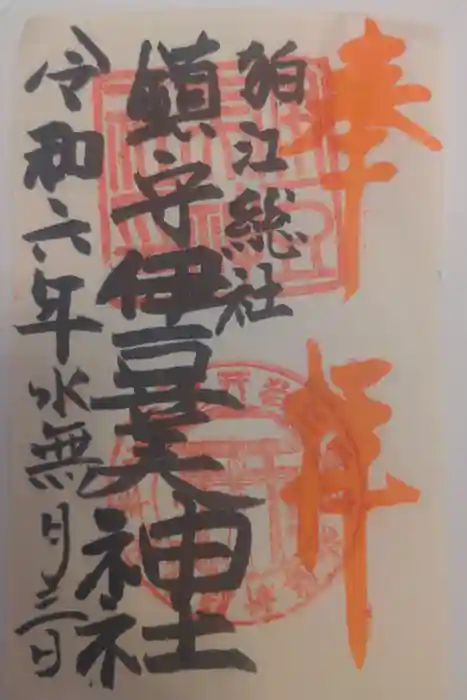 奉拝
狛江総社
鎮守伊豆美神社
令和六年水無月三日